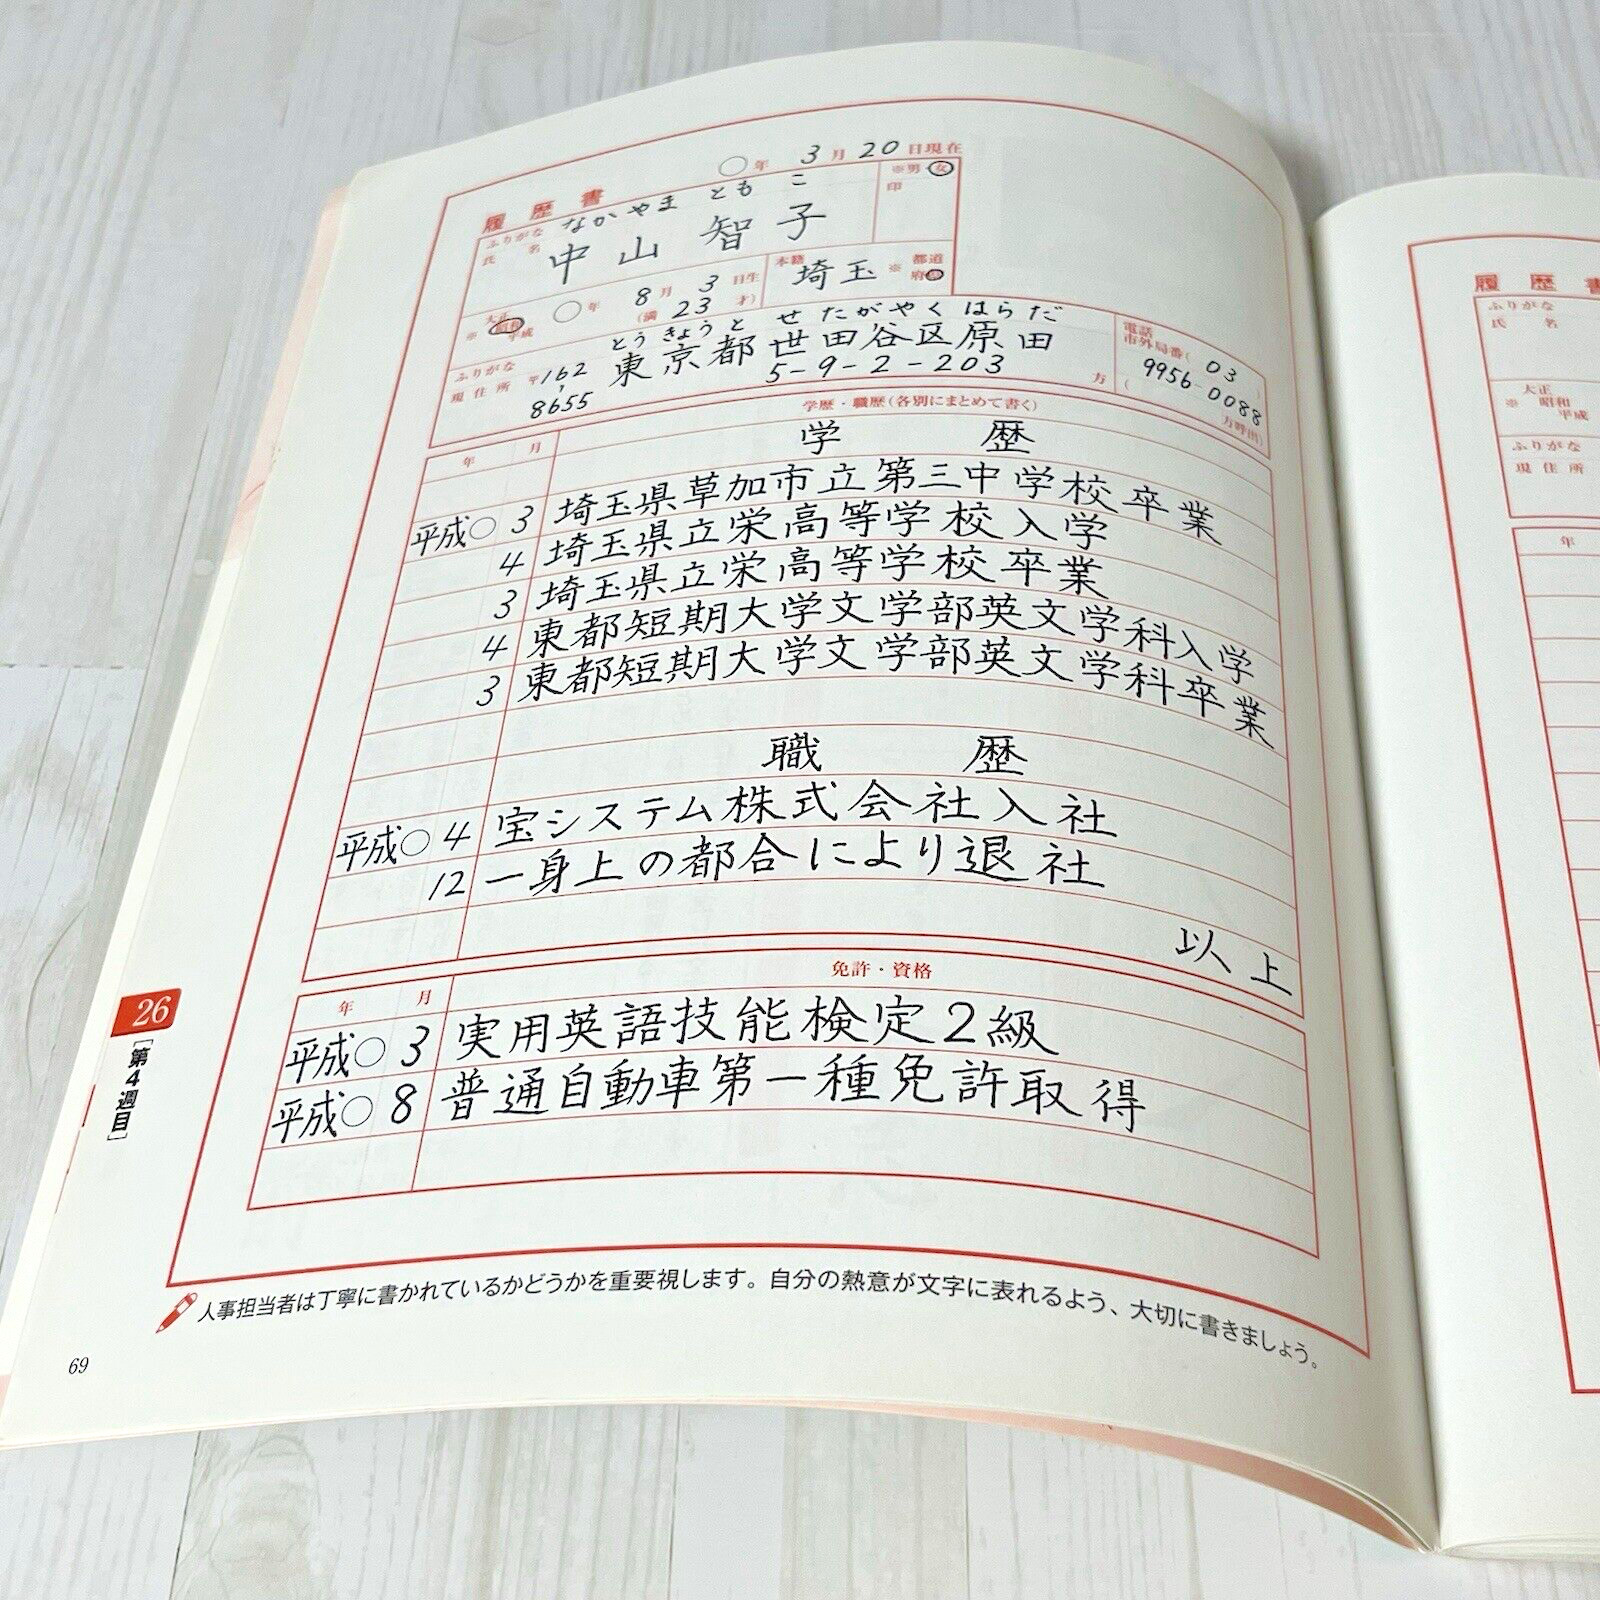 履歴書 ○年 3月 20日現在
ふりがな なかやま ともこ ※男・女
氏名 中山 智子 印
大正 昭和 平成 ※ ○年 8月 3日生 (満 23 才) 本籍 埼玉 ※ 都道府県
ふりがな とうきょうと せたがやく はらだ
現住所 〒162-8655 東京都世田谷区原田
5-9-2-203 方
電話 市外局番( 03 )
9956-0088
( 方呼出)
学歴・職歴(各別にまとめて書く)
年 月
学 歴
平成○ 3 埼玉県草加市立第三中学校卒業
4 埼玉県立栄高等学校入学
3 埼玉県立栄高等学校卒業
4 東都短期大学文学部英文学科入学
3 東都短期大学文学部英文学科卒業
職 歴
平成○ 4 宝システム株式会社入社
12 一身上の都合により退社
以上
年 月 免許・資格
平成○ 3 実用英語技能検定2級
平成○ 8 普通自動車第一種免許取得
人事担当者は丁寧に書かれているかどうかを重要視します。自分の熱意が文字に表れるよう、大切に書きましょう。
26
[第4週目]
69
履歴書
ふりがな
氏名
大正
※ 昭和
平成
ふりがな
現住所
年